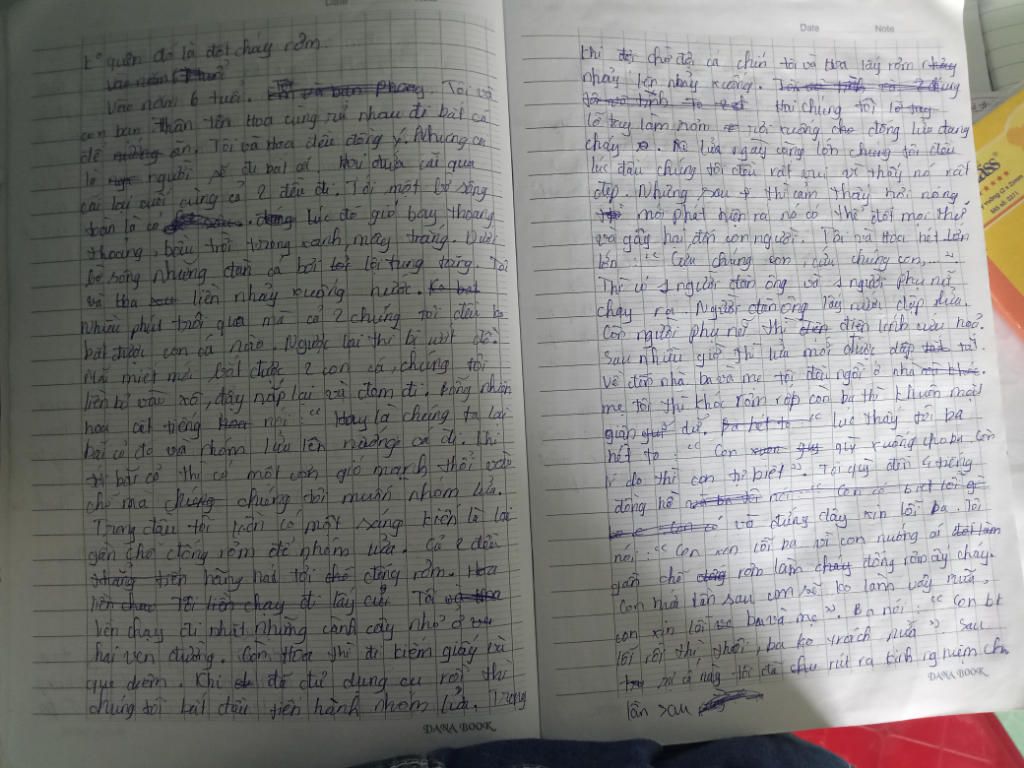 Date
quên đó là đốt cháy rơm.
Vào năm 6 tuổi. Tôi và
con bạn thân tên Hoa cùng rủ nhau đi bắt cá
để ăn. Tôi và Hoa đều đồng ý. Nhưng
người sẽ đi bắt cá. Hai đứa cãi qua
cãi lại cuối cùng cả 2 đều đi. Tới một bờ sông
lúc đó gió bay thoang
thoảng, bầu trời trong xanh, mây trắng. Dưới
bờ sông những đàn cá bơi lội tung tăng. Tôi
và Hoa liền nhảy xuống nước.
Nhiều phút trôi qua mà cả 2 chúng tôi đều ko
bắt được con cá nào. Ngược lại thì bị ướt đồ.
Mãi miệt mới bắt được 2 con cá, chúng tôi
liền bỏ vào xô, đậy nắp lại và đem đi. Bỗng nhiên
hoa cất tiếng nói: "Hay là chúng ta lại
bãi cỏ đó và nhóm lửa lên nướng cá đi. Khi
tới bãi cỏ thì có một cơn gió mạnh thổi vào
chỗ mà chúng tôi muốn nhóm lửa.
Trong đầu tôi có một sáng kiến là lại
gần chỗ đống rơm để nhóm lửa. Cả 2 đều
hăng hái tới đống rơm.
Tôi liền chạy đi lấy củi.
liền chạy đi nhặt những cành cây nhỏ ở
hai ven đường. Còn Hoa thì đi kiếm giấy và
que diêm. Khi đã đủ dụng cụ rồi thì
chúng tôi bắt đầu tiến hành nhóm lửa. Trong
DANA BOOK
Date Note
khi chờ đợi cá chín tôi và Hoa lấy rơm
nhảy lên nhảy xuống.
Hai chúng tôi lỡ tay
lỡ tay làm rơm rơi xuống đống lửa đang
cháy. lửa ngày càng lớn chúng tôi đều
lúc đầu chúng tôi đều rất vui vì thấy nó rất
đẹp. Nhưng sau thì cảm thấy hơi nóng
mới phát hiện ra nó có thể đốt mọi thứ
và gây hại đến con người. Tôi và Hoa hét lớn
lên: "Cứu chúng con, cứu chúng con,..."
Thì có 1 người đàn ông và 1 người phụ nữ
chạy ra. Người đàn ông lấy nước dập lửa.
Còn người phụ nữ thì điện lính cứu hoả.
Sau nhiều giờ thì lửa mới được dập tắt.
Về đến nhà ba và mẹ tôi đã ngồi ở nhà
mẹ tôi thì khóc còn ba thì khuôn mặt
giận dữ. lúc thấy tôi ba
hét to: "Con quỳ xuống cho ba. Còn
lí do thì con tự biết". Tôi quỳ đến 4 tiếng
đồng hồ
và đứng dậy xin lỗi ba. Tôi
nói: "Con xin lỗi ba vì con nướng cá
gần chỗ rơm làm đống rơm ấy cháy.
Con hứa lần sau con sẽ ko làm vậy nữa,
con xin lỗi ba và mẹ". Ba nói: "Con bt
lỗi rồi thì thôi, ba ko trách nữa". Sau
sự cố này tôi đã rút ra kinh nghiệm cho
lần sau
DANA BOOK